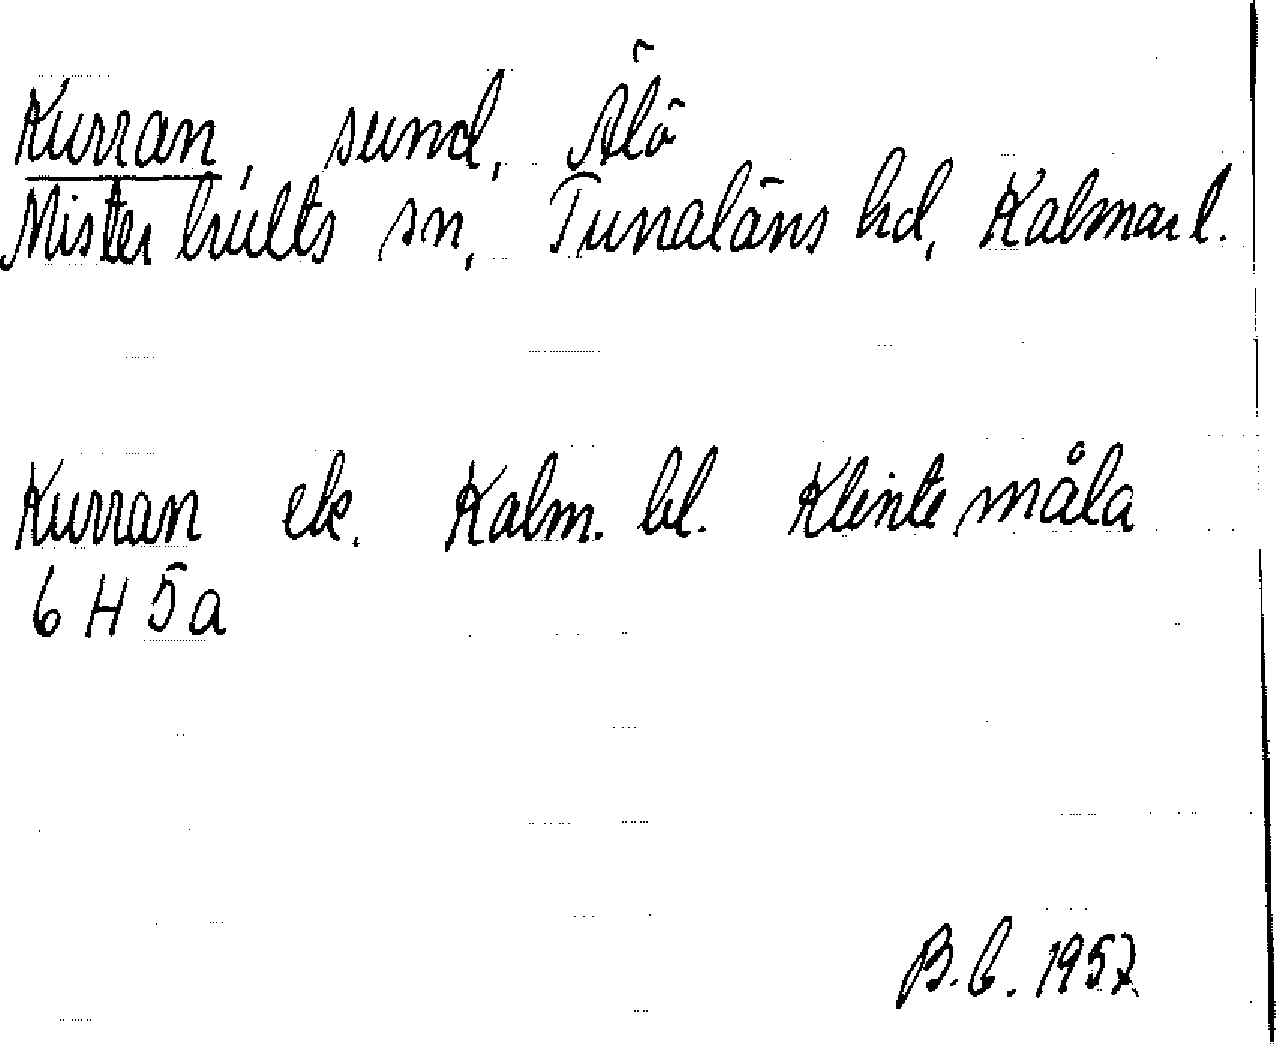 Kurran, sund, Älö
Misterhults sn, Tunaläns hd, Kalmar l.
Kurran ek. Kalm. bl. Klintemåla
6 H 5a
B.C. 1957